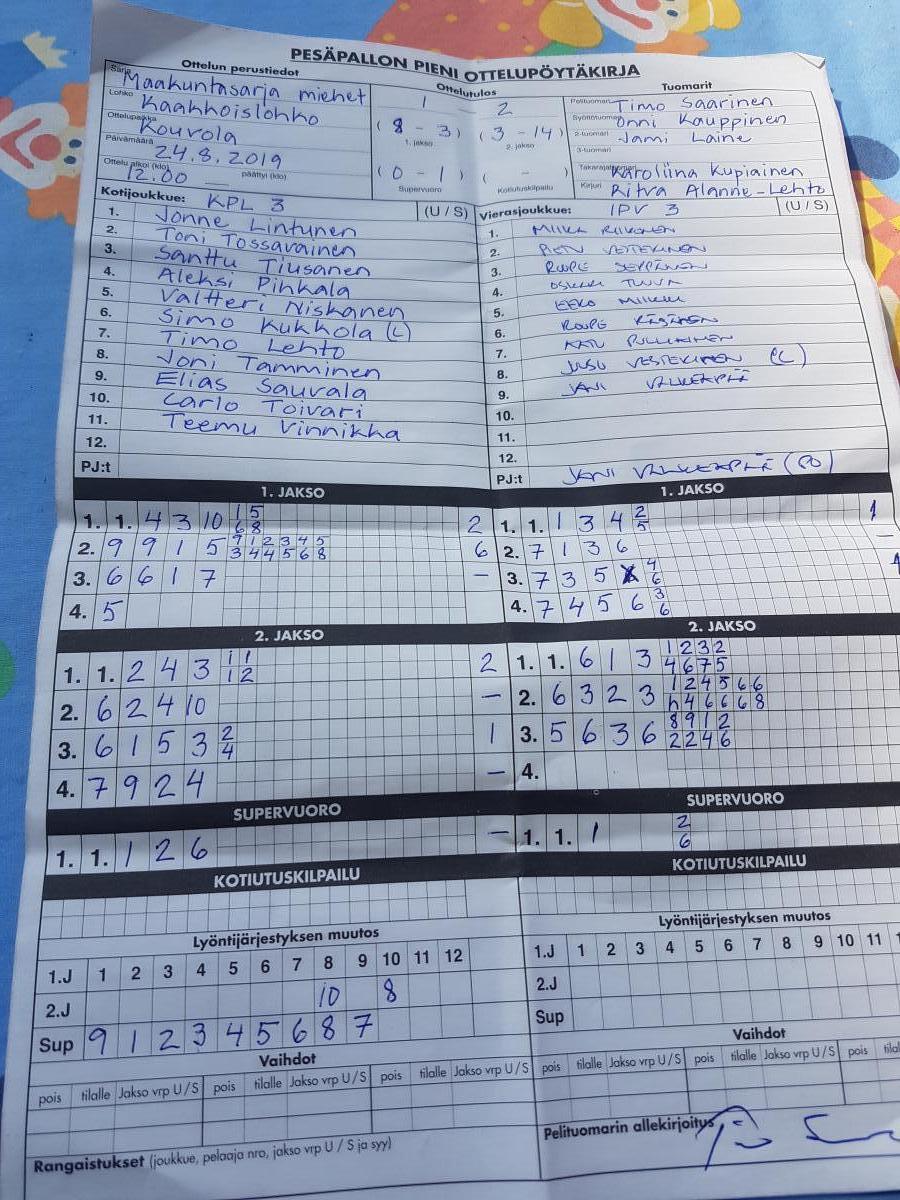 PESÄPALLON PIENI OTTELUPÖYTÄKIRJA
Ottelun perustiedot
Ottelutulos
Tuomarit
Sarja Maakuntasarja miehet
Lohko Kaakkoislohko
Ottelupaikka Kouvola
Päivämäärä 24.8.2019
Ottelu alkoi (klo) 12.00 — päättyi (klo)
1 - 2
(8 - 3) (3 - 14)
1. jakso 2. jakso
(0 - 1) ( - )
Supervuoro Kotiutuskilpailu
Pelituomari Timo Saarinen
Syöttötuomari Onni Kauppinen
2-tuomari Jami Laine
3-tuomari
Takarajatuomari Karoliina Kupiainen
Kirjuri Ritva Alanne-Lehto
Kotijoukkue: KPL 3 (U / S)
1. Jonne Lintunen
2. Toni Tossavainen
3. Santtu Tiusanen
4. Aleksi Pihkala
5. Valtteri Niskanen
6. Simo Kukkola (L)
7. Timo Lehto
8. Joni Tamminen
9. Elias Saurala
10. Carlo Toivari
11. Teemu Vinnikka
12.
PJ:t
Vierasjoukkue: IPV 3 (U / S)
1. MIIKA RIIKONEN
2. VESTERINEN
3. ROOPE SEPPÄNEN
4.
5. EERO
6. ROOPE RÄSÄNEN
7. PULLIAINEN
8. JUSU VESTERINEN (L)
9. JANI VALKEAPÄÄ
10.
11.
12.
PJ:t JANI VALKEAPÄÄ (PO)
1. JAKSO
1. 1. 4 3 10 1 5 2
6 8
2. 9 9 1 5 9 1 2 3 4 5 6
3 4 4 5 6 8
3. 6 6 1 7 —
4. 5
1. JAKSO
1. 1. 1 3 4 2 1
5
2. 7 1 3 6 —
3. 7 3 5 4 1
6
4. 7 4 5 6 3
6
2. JAKSO
1. 1. 2 4 3 1 1 2
1 2
2. 6 2 4 10 —
3. 6 1 5 3 2 1
4
4. 7 9 2 4 —
2. JAKSO
1. 1. 6 1 3 1 2 3 2
4 6 7 5
2. 6 3 2 3 1 2 4 5 6 6
4 6 6 6 8
3. 5 6 3 6 8 9 1 2
2 2 4 6
4.
SUPERVUORO
1. 1. 1 2 6 —
SUPERVUORO
1. 1. 1 2
6
KOTIUTUSKILPAILU
KOTIUTUSKILPAILU
Lyöntijärjestyksen muutos
1.J 1 2 3 4 5 6 7 8 9 10 11 12
2.J 10 8
Sup 9 1 2 3 4 5 6 8 7
Lyöntijärjestyksen muutos
1.J 1 2 3 4 5 6 7 8 9 10 11
2.J
Sup
Vaihdot
pois tilalle Jakso vrp U / S pois tilalle Jakso vrp U / S pois tilalle Jakso vrp U / S
Vaihdot
pois tilalle Jakso vrp U / S pois tilalle Jakso vrp U / S pois
Rangaistukset (joukkue, pelaaja nro, jakso vrp U / S ja syy)
Pelituomarin allekirjoitus